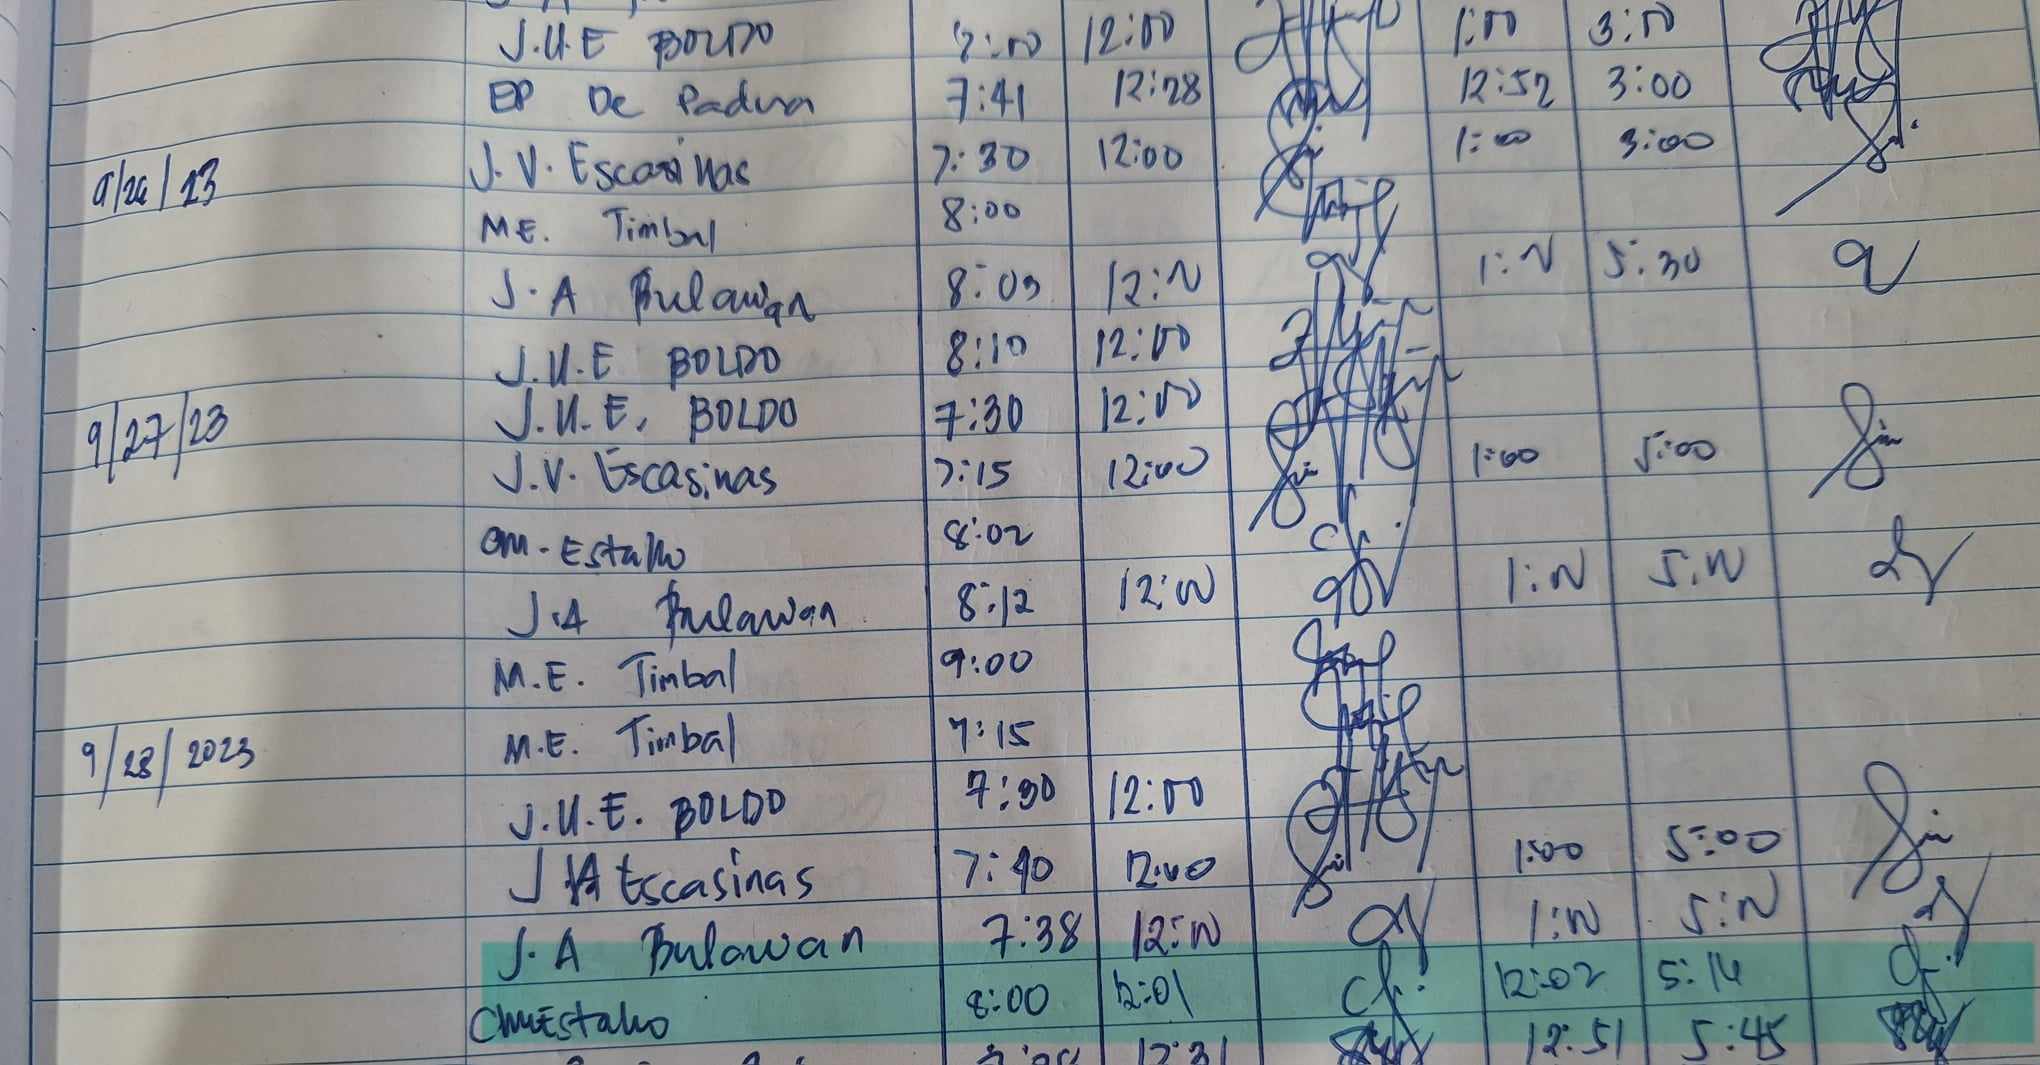 J.U.E BOLDO 7:00 12:00 1:00 3:00
EP De Padua 7:41 12:28 12:52 3:00
9/26/23 J.V. Escasinas 7:30 12:00 1:00 3:00
M.E. Timbal 8:00
J.A Bulawan 8:03 12:N 1:N 5:30
J.U.E BOLDO 8:10 12:00
9/27/23 J.U.E. BOLDO 7:30 12:00
J.V. Escasinas 7:15 12:00 1:00 5:00
CM. Estallo 8:02
J.A Bulawan 8:12 12:00 1:N 5:N
M.E. Timbal 9:00
9/28/2023 M.E. Timbal 7:15
J.U.E. BOLDO 7:30 12:00
Escasinas 7:40 12:00 1:00 5:00
J.A Bulawan 7:38 12:N 1:N 5:N
CM Estallo 8:00 12:01 12:02 5:14
12:31 12:51 5:45